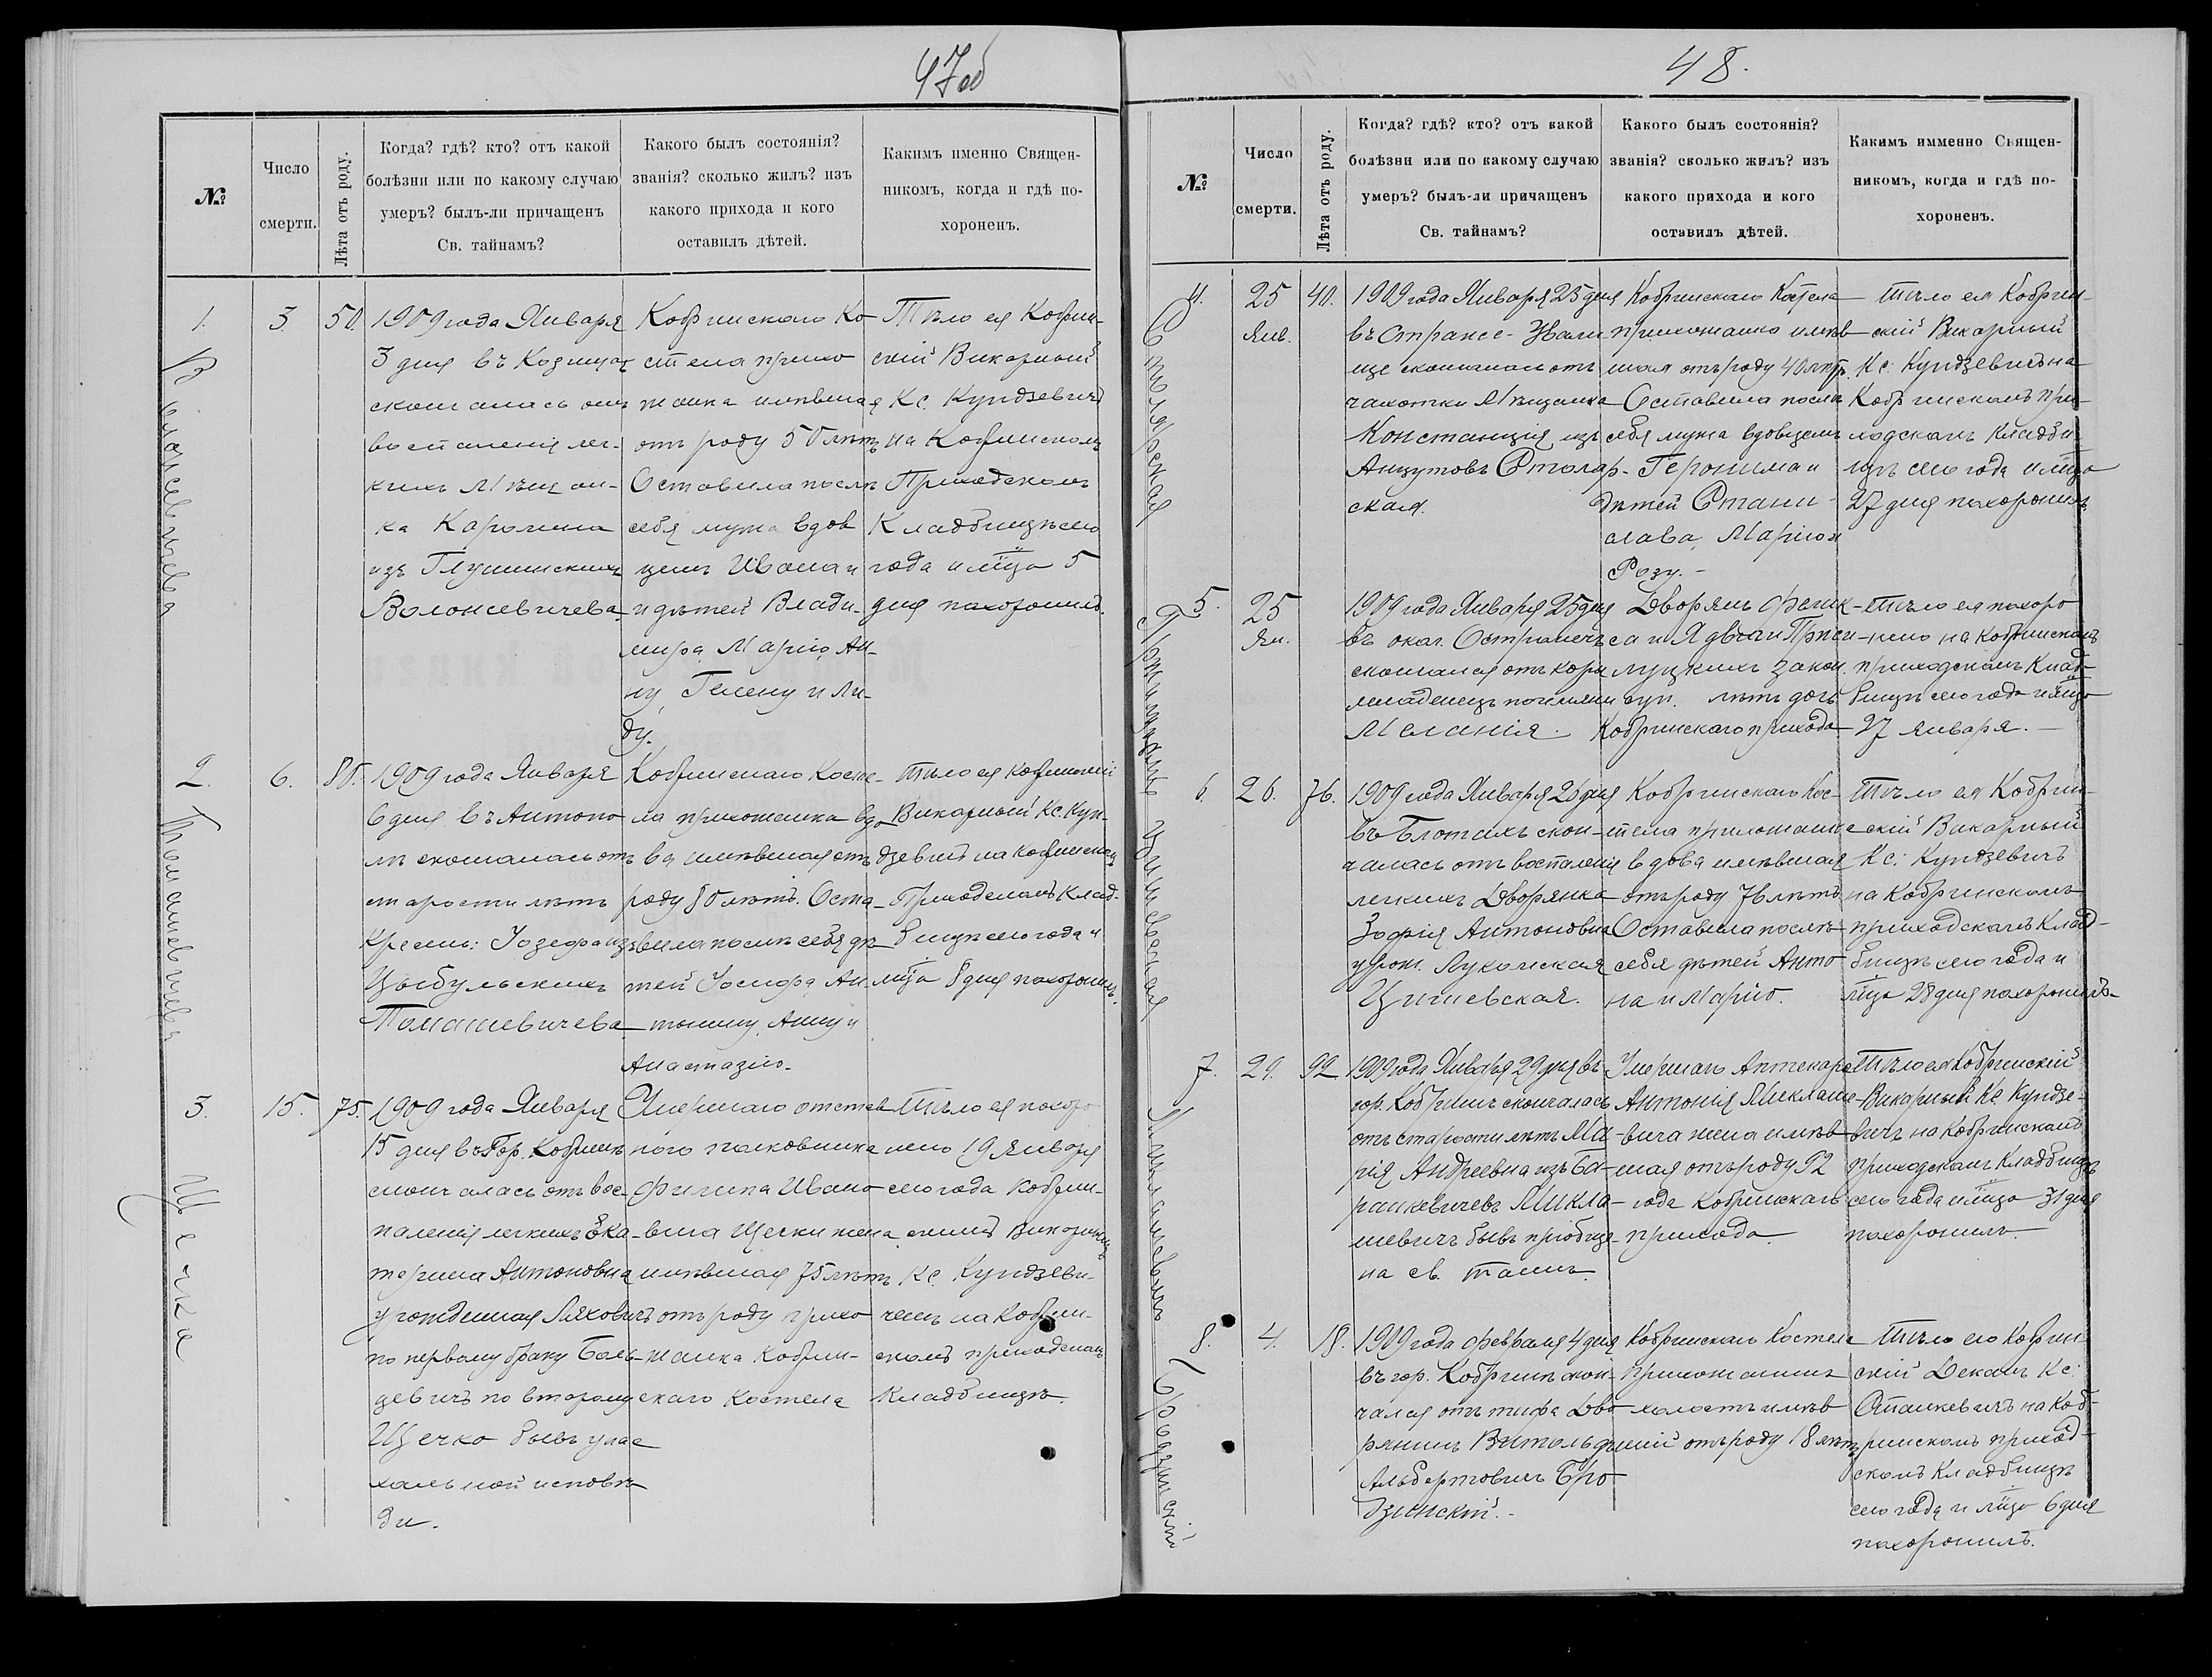 47об
№
Число
смерти.
Лѣта отъ роду.
Когда? гдѣ? кто? отъ какой
болѣзни или по какому случаю
умеръ? былъ-ли причащенъ
Св. тайнамъ?
Какого былъ состоянія?
званія? сколько жилъ? изъ
какого прихода и кого
оставилъ дѣтей.
Какимъ именно Священ-
никомъ, когда и гдѣ по-
хороненъ.
1.
Волонсевичева
3
50
1909 года Января
3 дня въ
скончалась отъ
воспаленія лег-
кихъ Мѣщан-
ка Каролина
изъ Глушинскихъ
Волонсевичева
Кобринскаго Ко-
стела прихо
жанка имѣвшая
отъ роду 50 лѣтъ
Оставила послѣ
себя мужа вдов
цемъ Ивана и
и дѣтей Влади-
мира, Марію, Ан-
ну, Гелену и Ли-
ду.
Тѣло ея Кобрин-
скій Викарный
Кс. Кундзевичъ
на Кобринскомъ
Приходскомъ
Кладбищѣ сего
года и мца 5
дня похоронилъ.
2.
Томашевичева
6.
80.
1909 года Января
6 дня въ Антопо
лѣ скончалась отъ
старости лѣтъ
Крестьян: Іозефа изъ
Цыбульскихъ
Томашевичева
Кобринскаго Косте-
ла прихожанка вдо
ва имѣвшая отъ
роду 80 лѣтъ. Оста-
вила послѣ себя дѣ
тей Іосифа, Ан-
тонину, Анну и
Анастазію.
Тѣло ея Кобринскій
Викарный Кс. Кун-
дзевичъ на Кобринском
Приходскомъ Клад-
бищѣ сего года и
мца 8 дня похоронилъ.
3.
Щечко
15.
75.
1909 года Января
15 дня въ Гор. Кобринѣ
скончалась отъ вос-
паленія легкихъ Ека-
терина Антоновна
урожденная Ляховичъ
по первому браку
по второму
Щечко бывъ
исповѣ
ди.
Умершаго отстав
ного полковника
Филипа Ивано
вича Щечки жена
имѣвшая 75 лѣтъ
отъ роду прихо
жанка Кобрин-
скаго Костела
Тѣло ея похоро
нено 19 Января
сего года Кобрин-
скимъ Викарнымъ
Кс. Кундзеви-
чемъ на Кобрин-
скомъ приходскомъ
Кладбищѣ.
48.
№
Число
смерти.
Лѣта отъ роду.
Когда? гдѣ? кто? отъ какой
болѣзни или по какому случаю
умеръ? былъ-ли причащенъ
Св. тайнамъ?
Какого былъ состоянія?
званія? сколько жилъ? изъ
какого прихода и кого
оставилъ дѣтей.
Какимъ имменно Священ-
никомъ, когда и гдѣ по-
хороненъ.
4.
Столярская
25
Янв.
40.
1909 года Января 25 дня
въ
скончалась отъ
чахотки Мѣщанка
Констанція изъ
Анцутовъ Столяр-
ская.
Кобринскаго Костела
прихожанка имѣв
шая отъ роду 40 лѣтъ.
Оставила послѣ
себя мужа вдовцемъ
Геронима и
дѣтей Стани-
слава, Марію и
Розу.
Тѣло ея Кобрин-
скій Викарный
Кс: Кундзевичъ на
Кобринскомъ при-
ходскомъ кладби-
щѣ сего года и мца
27 дня похоронилъ
5.
25
Ян.
1909 года Января 25 дня
въ окол. Остромечъ
скончался отъ кори
младенецъ по имени
Меланія.
Дворянъ Фелик-
са и Ядвиги
закон.
суп. лѣтъ дочь
Кобринскаго прихода
Тѣло ея похоро
нено на Кобринскомъ
приходскомъ Клад-
бищѣ сего года и мца
27 января.
6.
Цишевская
26.
76.
1909 года Января 26 дня
въ Блотахъ скон-
чалась отъ воспаленія
легкихъ Дворянка
Зофія Антоновна
урож. Лукомская
Цишевская.
Кобринскаго Кос-
тела прихожанка
вдова имѣвшая
отъ роду 76 лѣтъ
Оставила послѣ
себя дѣтей Анто
на и Марію.
Тѣло ея Кобрин-
скій Викарный
Кс: Кундзевичъ
на Кобринскомъ
приходскомъ Клад-
бищѣ сего года и
мца 28 дня похоронилъ
7.
Миклашевичъ
29.
92.
1909 года Января 29 дня въ
гор. Кобринѣ скончалась
отъ старости лѣтъ Ма-
рія Андреевна изъ Ба-
ранкевичевъ Микла-
шевичъ бывъ приобще-
на св. таинъ.
Умершаго Аптекаря
Антонія Миклаше-
вича жена имѣв
шая отъ роду 92
года Кобринскаго
прихода.
Тѣло ея Кобринскій
Викарный Кс. Кундзе-
вичъ на Кобринскомъ
приходскомъ Кладбищѣ
сего года и мца 31 дня
похоронилъ.
8.
Бродзинскій
4.
18.
1909 года Февраля 4 дня
въ гор. Кобринѣ скон-
чался отъ тифа Дво
рянинъ Витольдъ
Альбертовичъ Бро-
дзинскій.
Кобринскаго Костела
прихожанинъ
холостъ имѣв
шій отъ роду 18 лѣтъ
Тѣло его Кобрин-
скій Деканъ Кс:
Станкевичъ на Коб-
ринскомъ приход-
скомъ Кладбищѣ
сего года и мца 6 дня
похоронилъ.